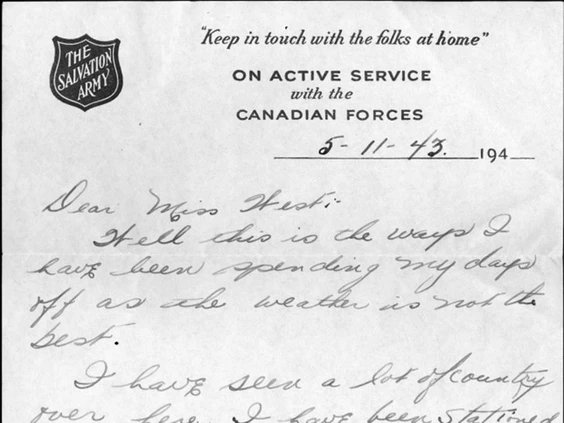 THE
SALVATION
ARMY
"Keep in touch with the folks at home"
ON ACTIVE SERVICE
with the
CANADIAN FORCES
5-11-43. 194
Dear Miss West:-
Well this is the ways I
have been spending my days
off as the weather is not the
best.
I have seen a lot of country
over here. I have been stationed